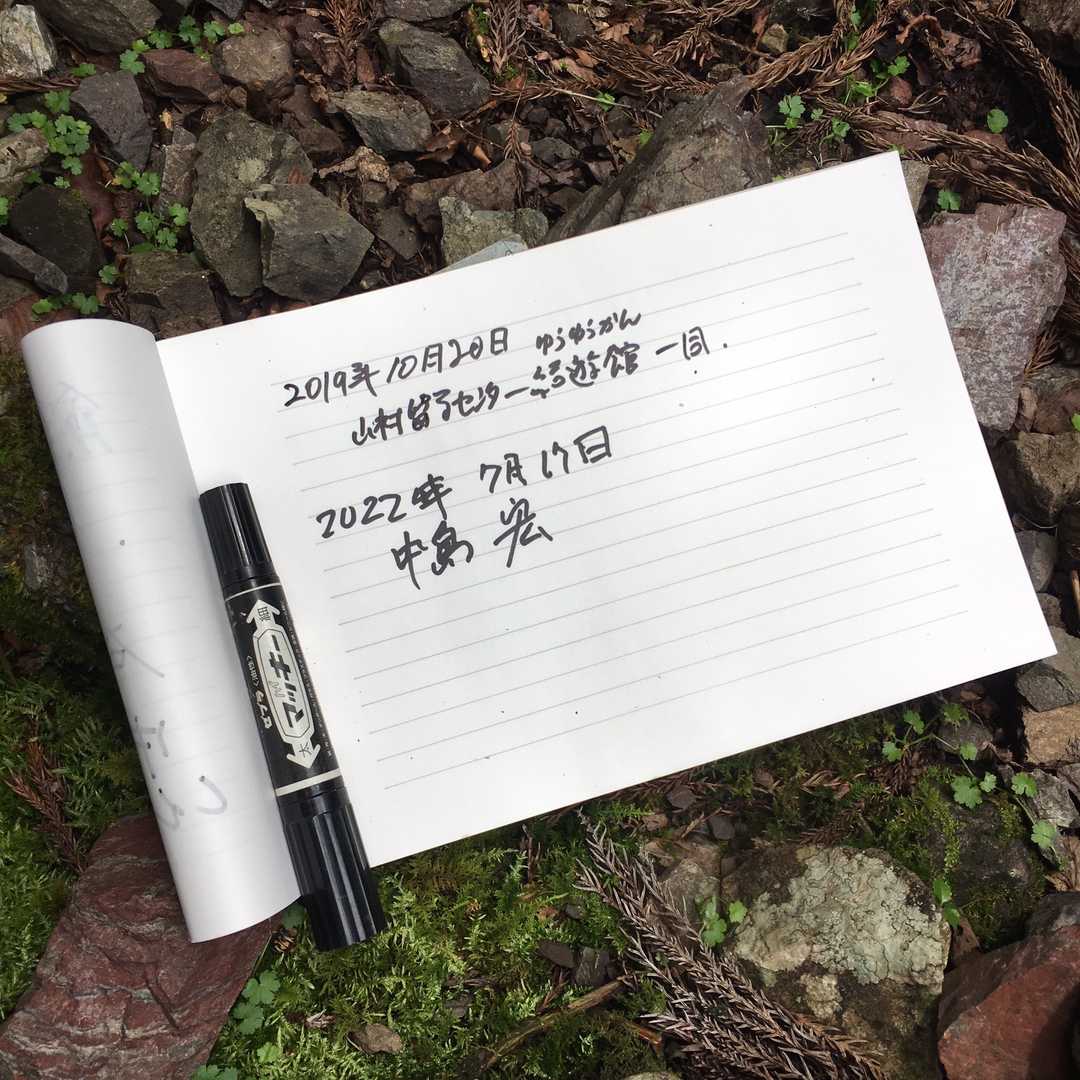 2019年10月20日
ゆうゆうかん
山村留学センター結遊館 一同.
2022年 7月17日
中島 宏
細
マッキー
太
ゼブラ